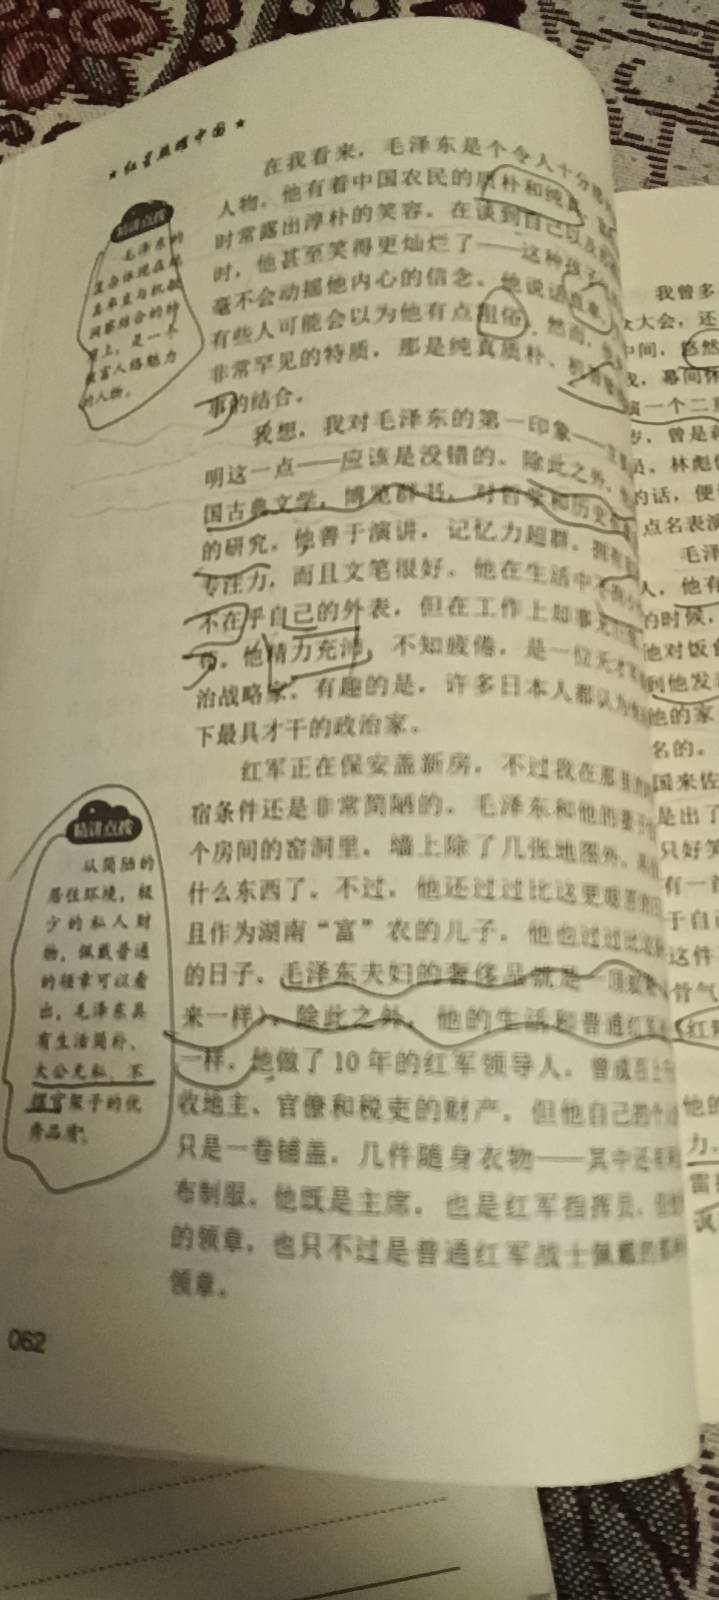 ★红星照耀中国★
在我看来，毛泽东是个令人十分
人物。他有着中国农民的质朴和纯真，
时常露出淳朴的笑容。在谈到自己以及
时，他甚至笑得更灿烂了——这种孩子
毫不会动摇他内心的信念。他说话直率，
有些人可能会以为他有点粗俗。然而，他
非常罕见的特质，那是纯真质朴、
的结合。
我想，我对毛泽东的第一印象——
明这一点——应该是没错的。除此之外，
国古典文学，博览群书，对哲学和历史
的研究。他善于演讲，记忆力超群，拥有
专注力，而且文笔很好。他在生活中
不在乎自己的外表，但在工作上却事无
他精力充沛，不知疲倦，是一位天才
治战略家。有趣的是，许多日本人都认为
下最具才干的政治家。
红军正在保安盖新房。不过我在那里
宿条件还是非常简陋的。毛泽东和他的妻子
个房间的窑洞里，墙上除了几张地图外，
什么东西了。不过，他还过过比这更艰苦
且作为湖南“富”农的儿子，他也过过比这
的日子。毛泽东夫妇的奢侈品就是一顶蚊帐
来一样）。除此之外，他的生活和普通红军
一样。他做了10年的红军领导人，曾成百上
收地主、官僚和税吏的财产，但他自己的
只是一卷铺盖，几件随身衣物——其中还有
布制服。他既是主席，也是红军指挥员，
的领章，也只不过是普通红军战士佩戴的那种
领章。
精讲点拨
毛泽东的
复杂体现在
直率与机敏
洞察结合的特
质上，是一个
极富人格魅力
的人物。
精讲点拨
从简陋的
居住环境，极
少的私人财
物，佩戴普通
的领章可以看
出，毛泽东具
有生活简朴、
大公无私、不
摆官架子的优
秀品质。
062
我曾多
大会，还
中间，悠然
幕间休
演一个二重
岁，曾是
员。林彪
的话，便
点名表演
毛泽
人，他有
的时候，
他对饭食
到他发
他的家
名的。
国来佐
是出了
只好笑
有一首
于自己
这件
骨气
红辣
他的
力。
雷
讽